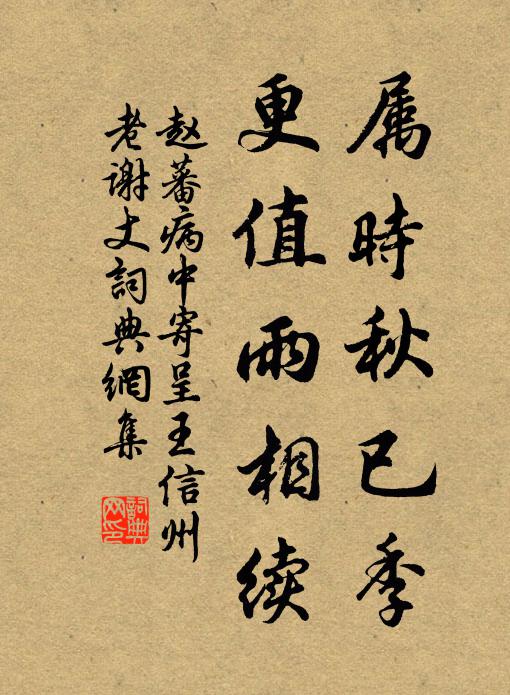 属時秋已季
更值雨相续
赵蕃病中寄呈王信州
老谢丈詞典網集
詞典
网印